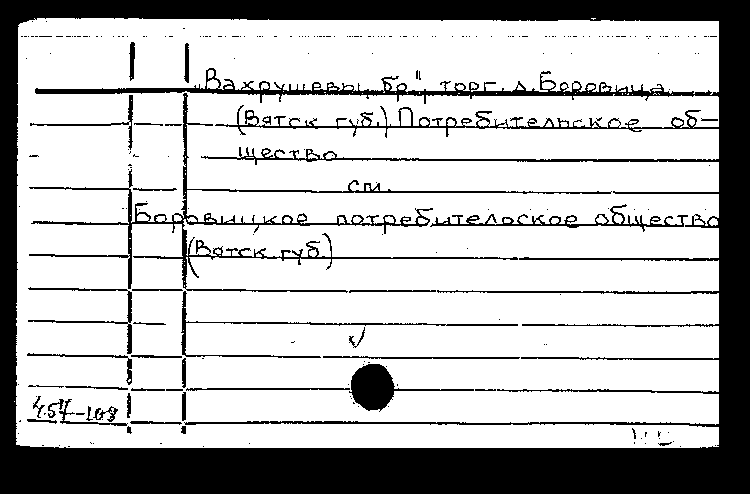 „Вахрушевы, бр.", торг. д. Боровица
(Вятск губ.) Потребительское об-
щество
см.
Боровицкое потребительское общество
(Вятск. губ.)